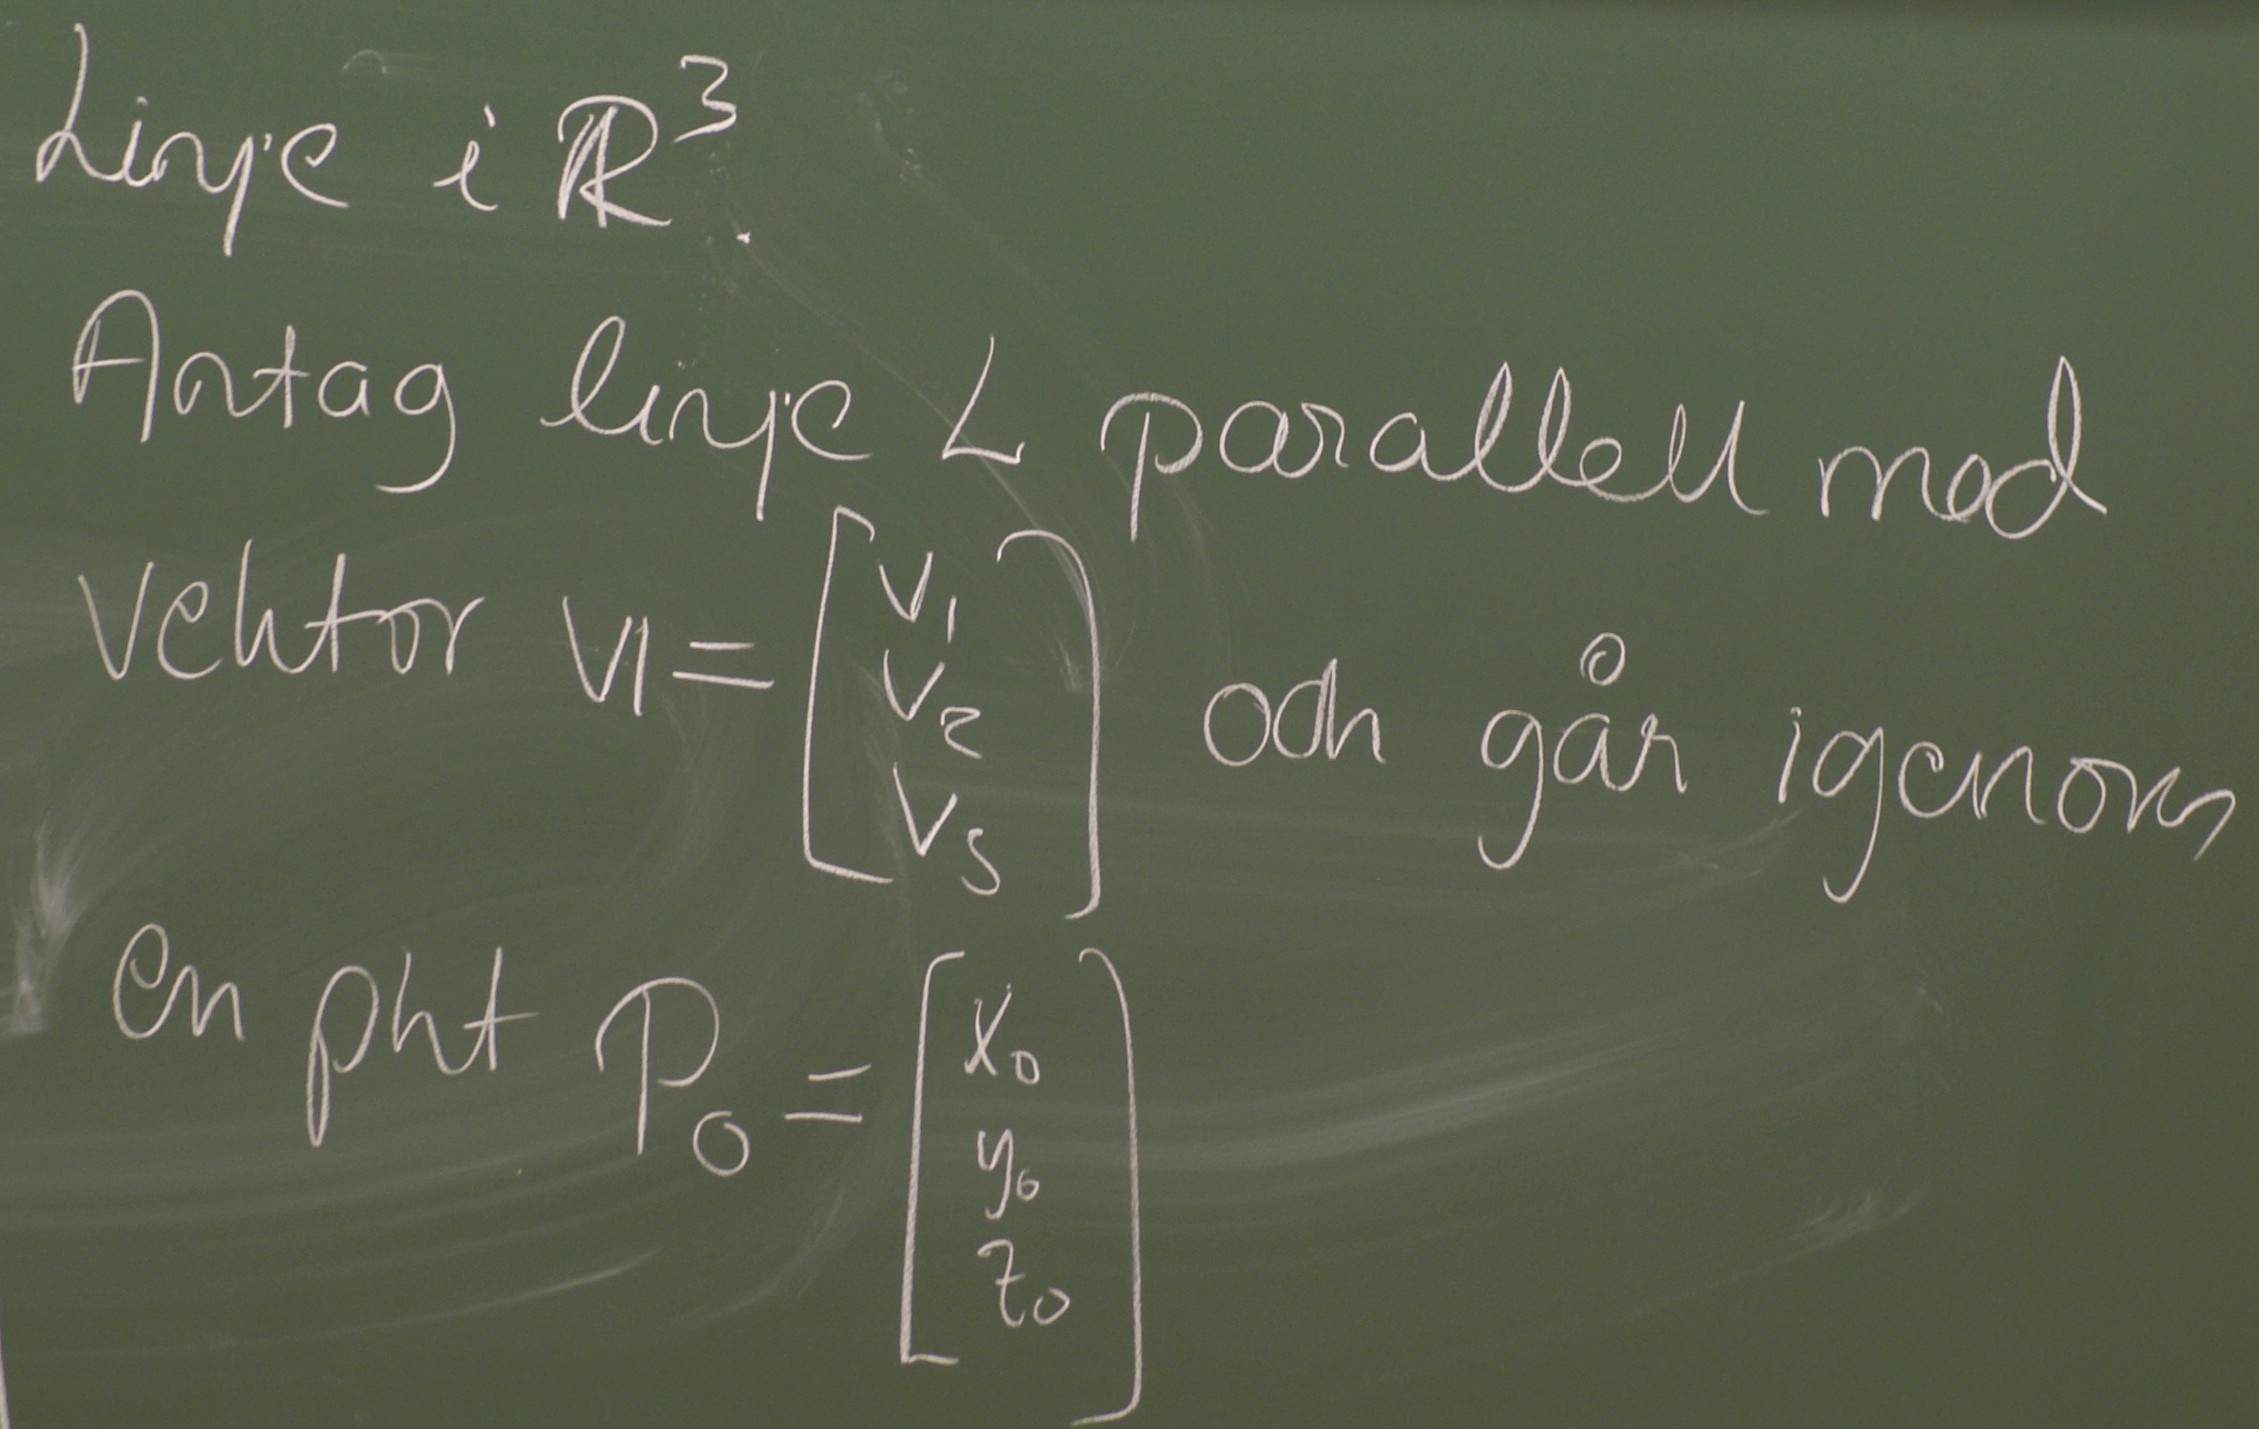 Linje i ℝ³.
Antag linje L parallell med
vektor 𝕍 = [v₁ v₂ v₃] och går igenom
en pkt P₀ = [x₀ y₀ z₀]